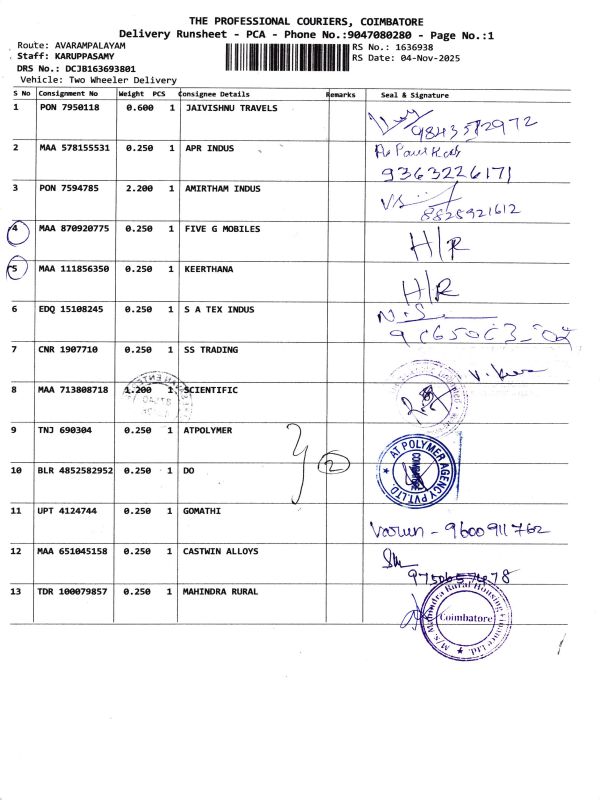 THE PROFESSIONAL COURIERS, COIMBATORE
Delivery Runsheet - PCA - Phone No.:9047080280 - Page No.:1
Route: AVARAMPALAYAM RS No.: 1636938
Staff: KARUPPASAMY RS Date: 04-Nov-2025
DRS No.: DCJB163693801
Vehicle: Two Wheeler Delivery
S No Consignment No Weight PCS Consignee Details Remarks Seal & Signature
1 PON 7950118 0.600 1 JAIVISHNU TRAVELS 9843572972
2 MAA 578155531 0.250 1 APR INDUS
9363226171
3 PON 7594785 2.200 1 AMIRTHAM INDUS
8825921612
4 MAA 870920775 0.250 1 FIVE G MOBILES H/R
5 MAA 111856350 0.250 1 KEERTHANA H/R
6 EDQ 15108245 0.250 1 S A TEX INDUS
7 CNR 1907710 0.250 1 SS TRADING
8 MAA 713808718 1.200 1 SCIENTIFIC
9 TNJ 690304 0.250 1 ATPOLYMER
AT POLYMER AGENCY PVT.LTD.
COIMBATORE
10 BLR 4852582952 0.250 1 DO 2
11 UPT 4124744 0.250 1 GOMATHI
Varun - 9600911762
12 MAA 651045158 0.250 1 CASTWIN ALLOYS
13 TDR 100079857 0.250 1 MAHINDRA RURAL
M/s. Mahindra Rural Housing Finance Ltd.
Coimbatore